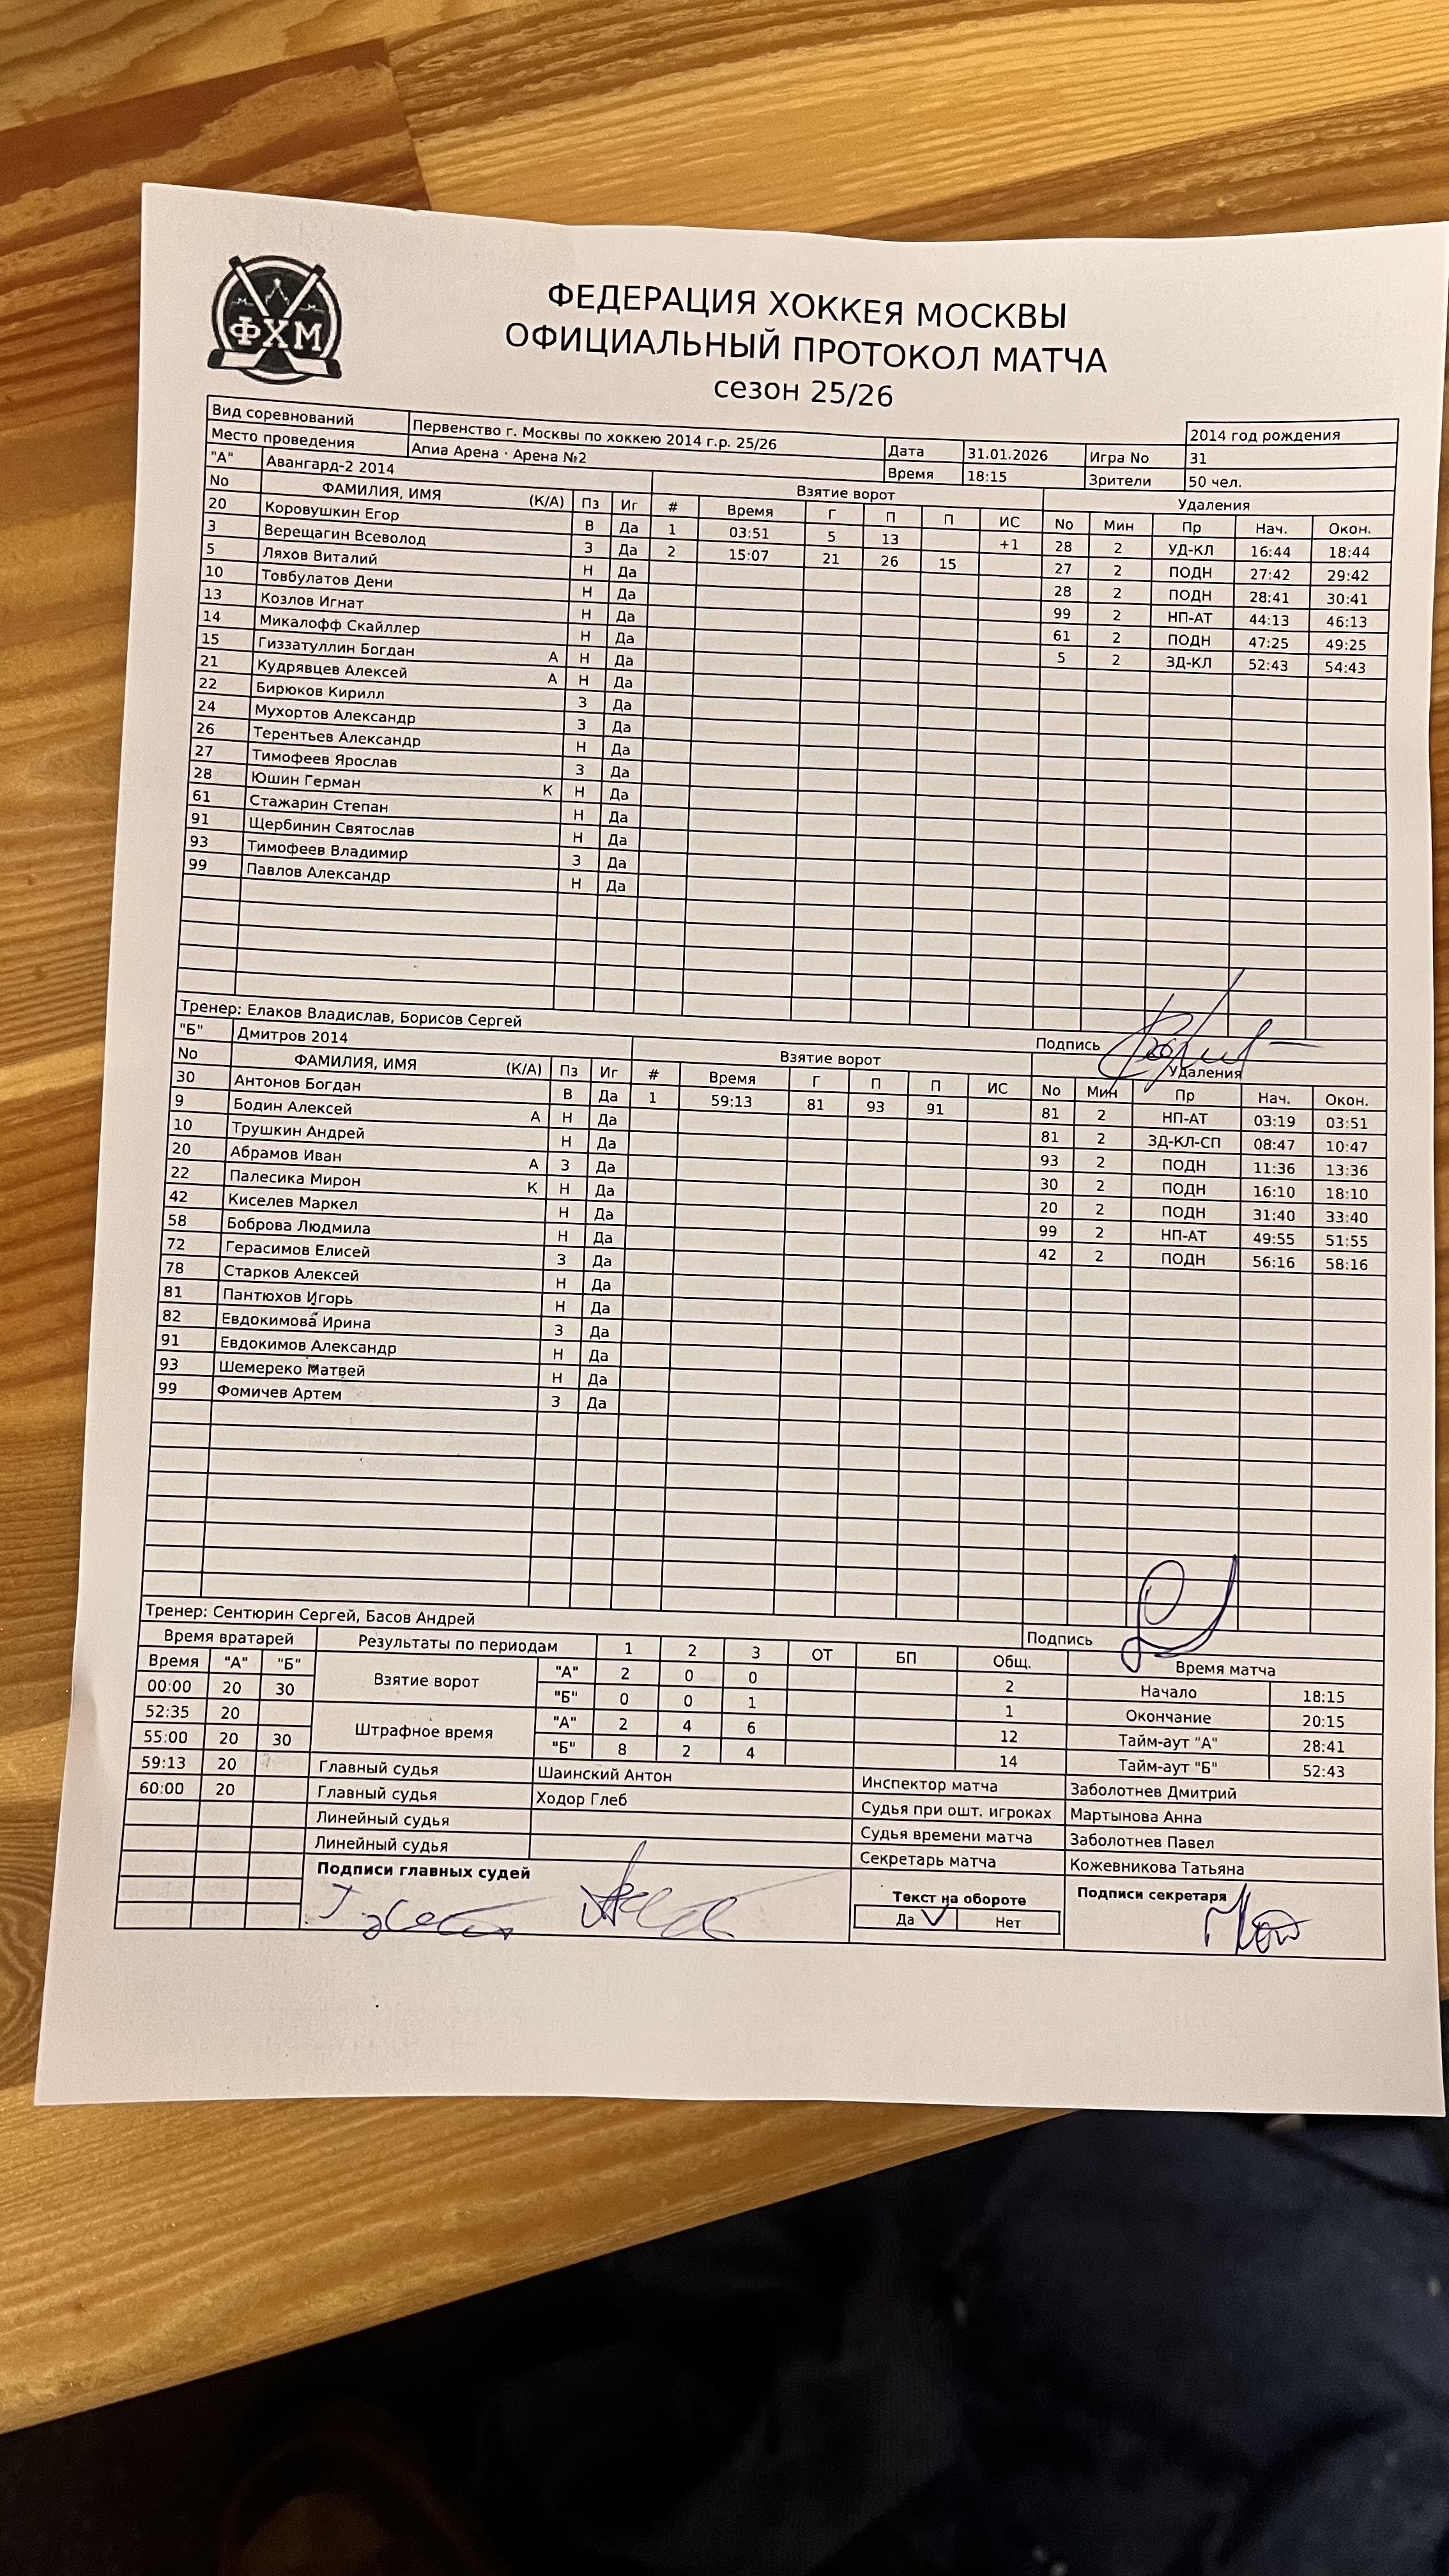 ФХМ
ФЕДЕРАЦИЯ ХОККЕЯ МОСКВЫ
ОФИЦИАЛЬНЫЙ ПРОТОКОЛ МАТЧА
сезон 25/26
Вид соревнований Первенство г. Москвы по хоккею 2014 г.р. 25/26 Дата 31.01.2026 Игра No 2014 год рождения
Место проведения Апиа Арена · Арена №2 Время 18:15 Зрители 31
"А" Авангард-2 2014 Взятие ворот Удаления 50 чел.
No ФАМИЛИЯ, ИМЯ (К/А) Пз Иг # Время Г П П ИС No Мин Пр Нач. Окон.
20 Коровушкин Егор В Да 1 03:51 5 13 +1 28 2 УД-КЛ 16:44 18:44
3 Верещагин Всеволод З Да 2 15:07 21 26 15 27 2 ПОДН 27:42 29:42
5 Ляхов Виталий Н Да 28 2 ПОДН 28:41 30:41
10 Товбулатов Дени Н Да 99 2 НП-АТ 44:13 46:13
13 Козлов Игнат Н Да 61 2 ПОДН 47:25 49:25
14 Микалофф Скайллер Н Да 5 2 ЗД-КЛ 52:43 54:43
15 Гиззатуллин Богдан А Н Да
21 Кудрявцев Алексей А Н Да
22 Бирюков Кирилл З Да
24 Мухортов Александр З Да
26 Терентьев Александр Н Да
27 Тимофеев Ярослав З Да
28 Юшин Герман К Н Да
61 Стажарин Степан Н Да
91 Щербинин Святослав Н Да
93 Тимофеев Владимир З Да
99 Павлов Александр Н Да
Тренер: Елаков Владислав, Борисов Сергей Подпись
"Б" Дмитров 2014 Взятие ворот Удаления
No ФАМИЛИЯ, ИМЯ (К/А) Пз Иг # Время Г П П ИС No Мин Пр Нач. Окон.
30 Антонов Богдан В Да 1 59:13 81 93 91 81 2 НП-АТ 03:19 03:51
9 Бодин Алексей А Н Да 81 2 ЗД-КЛ-СП 08:47 10:47
10 Трушкин Андрей Н Да 93 2 ПОДН 11:36 13:36
20 Абрамов Иван А З Да 30 2 ПОДН 16:10 18:10
22 Палесика Мирон К Н Да 20 2 ПОДН 31:40 33:40
42 Киселев Маркел Н Да 99 2 НП-АТ 49:55 51:55
58 Боброва Людмила Н Да 42 2 ПОДН 56:16 58:16
72 Герасимов Елисей З Да
78 Старков Алексей Н Да
81 Пантюхов Игорь Н Да
82 Евдокимова Ирина З Да
91 Евдокимов Александр Н Да
93 Шемереко Матвей Н Да
99 Фомичев Артем З Да
Тренер: Сентюрин Сергей, Басов Андрей Подпись
Время вратарей Результаты по периодам 1 2 3 ОТ БП Общ. Время матча
Время "А" "Б" Взятие ворот "А" 2 0 0 2 Начало 18:15
00:00 20 30 "Б" 0 0 1 1 Окончание 20:15
52:35 20 Штрафное время "А" 2 4 6 12 Тайм-аут "А" 28:41
55:00 20 30 "Б" 8 2 4 14 Тайм-аут "Б" 52:43
59:13 20 Главный судья Шаинский Антон Инспектор матча Заболотнев Дмитрий
60:00 20 Главный судья Ходор Глеб Судья при ошт. игроках Мартынова Анна
Линейный судья Судья времени матча Заболотнев Павел
Линейный судья Секретарь матча Кожевникова Татьяна
Подписи главных судей Текст на обороте Подписи секретаря
Да Нет